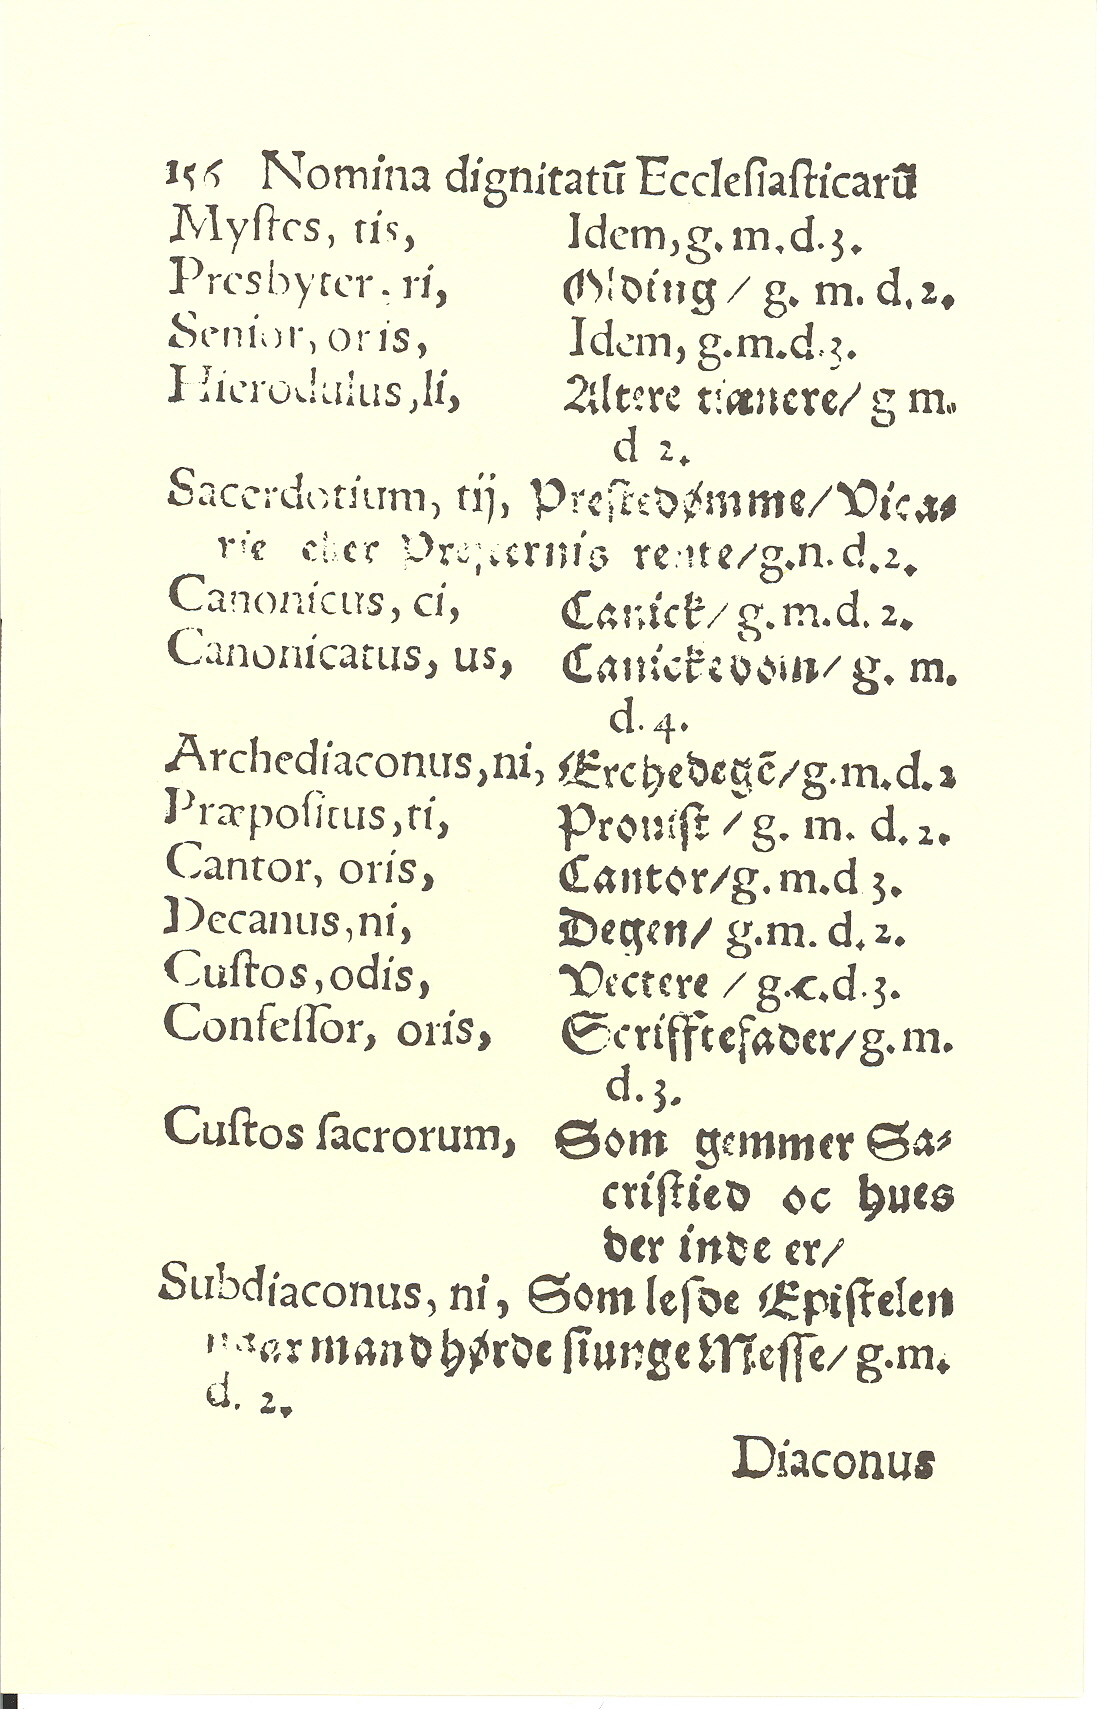 156 Nomina dignitatũ Eccleſiaſticarũ
Myſtes, tis, Idem, g. m. d. 3.
Presbyter, ri, Olding / g. m. d. 2.
Senior, oris, Idem, g. m. d. 3.
Hierodulus, li, Altere tiænere / g m.
d 2.
Sacerdotium, tij, Preſtedømme / Vica-
rie eller rente / g. n. d. 2.
Canonicus, ci, Canick / g. m. d. 2.
Canonicatus, us, Canickedom / g. m.
d. 4.
Archediaconus, ni, Erchedegẽ / g. m. d. 2
Præpoſitus, ti, Prouiſt / g. m. d. 2.
Cantor, oris, Cantor / g. m. d 3.
Decanus, ni, Degen / g. m. d. 2.
Cuſtos, odis, Vectere / g. c. d. 3.
Confeſſor, oris, Scrifftefader / g. m.
d. 3.
Cuſtos ſacrorum, Som gemmer Sa-
criſtied oc hues
der inde er /
Subdiaconus, ni, Som leſde Epiſtelen
naar mand hørde ſiunge Meſſe / g. m.
d. 2.
Diaconus